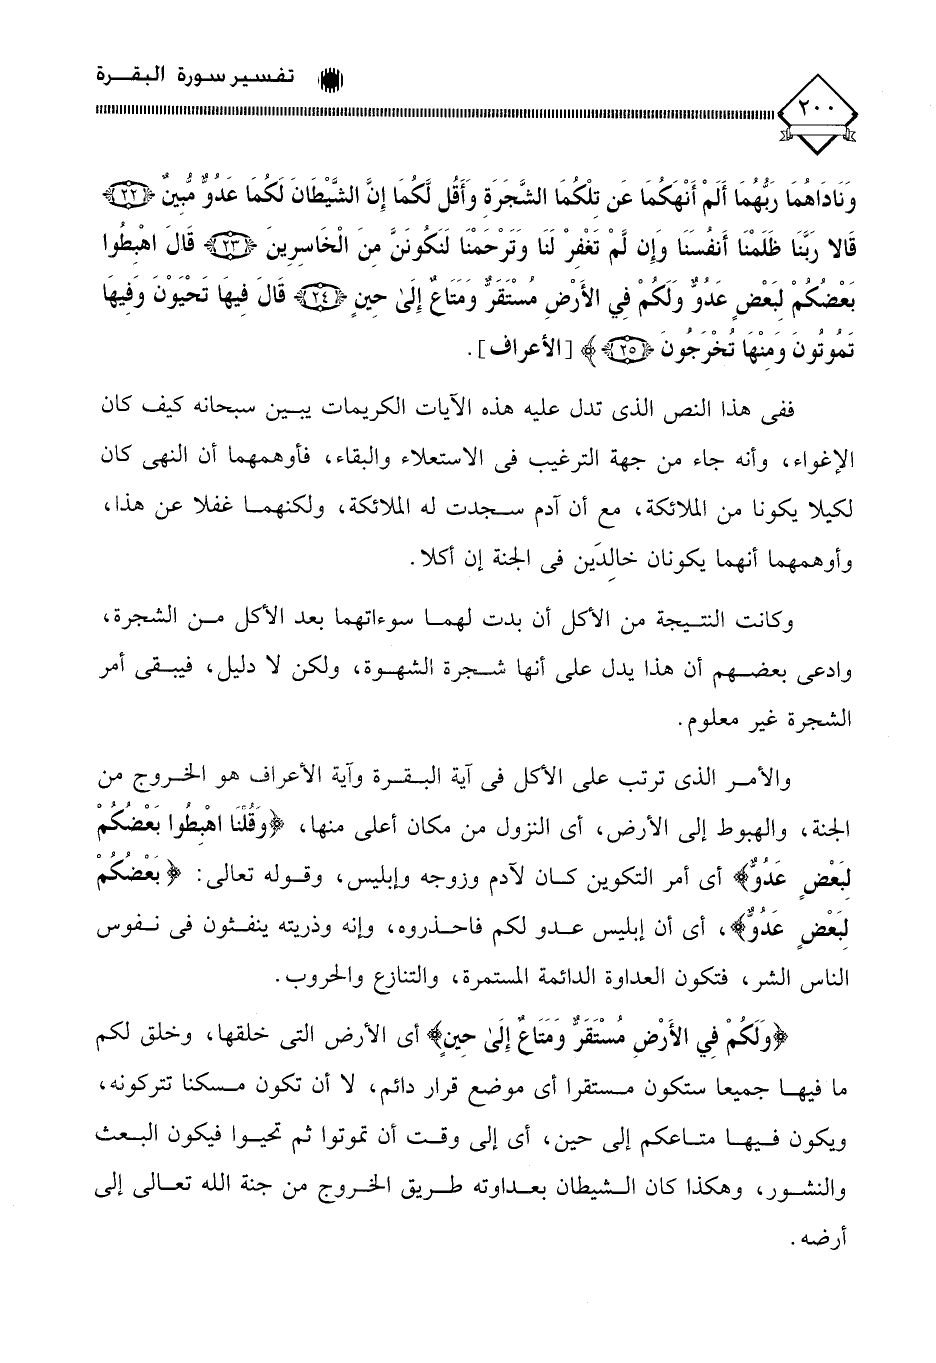 تفسير سورة البقرة
٢٠٠
وَنَادَاهُمَا رَبُّهُمَا أَلَمْ أَنْهَكُمَا عَن تِلْكُمَا الشَّجَرَةِ وَأَقُل لَّكُمَا إِنَّ الشَّيْطَانَ لَكُمَا عَدُوٌّ مُّبِينٌ ﴿٢٢﴾
قَالا رَبَّنَا ظَلَمْنَا أَنفُسَنَا وَإِن لَّمْ تَغْفِرْ لَنَا وَتَرْحَمْنَا لَنَكُونَنَّ مِنَ الْخَاسِرِينَ ﴿٢٣﴾ قَالَ اهْبِطُوا
بَعْضُكُمْ لِبَعْضٍ عَدُوٌّ وَلَكُمْ فِي الأَرْضِ مُسْتَقَرٌّ وَمَتَاعٌ إِلَىٰ حِينٍ ﴿٢٤﴾ قَالَ فِيهَا تَحْيَوْنَ وَفِيهَا
تَمُوتُونَ وَمِنْهَا تُخْرَجُونَ ﴿٢٥﴾﴾ [الأعراف].
ففى هذا النص الذى تدل عليه هذه الآيات الكريمات يبين سبحانه كيف كان
الإغواء، وأنه جاء من جهة الترغيب فى الاستعلاء والبقاء، فأوهمهما أن النهى كان
لكيلا يكونا من الملائكة، مع أن آدم سجدت له الملائكة، ولكنهما غفلا عن هذا،
وأوهمهما أنهما يكونان خالدَين فى الجنة إن أكلا.
وكانت النتيجة من الأكل أن بدت لهما سوءاتهما بعد الأكل من الشجرة،
وادعى بعضهم أن هذا يدل على أنها شجرة الشهوة، ولكن لا دليل، فيبقى أمر
الشجرة غير معلوم.
والأمر الذى ترتب على الأكل فى آية البقرة وآية الأعراف هو الخروج من
الجنة، والهبوط إلى الأرض، أى النزول من مكان أعلى منها، ﴿وَقُلْنَا اهْبِطُوا بَعْضُكُمْ
لِبَعْضٍ عَدُوٌّ﴾ أى أمر التكوين كان لآدم وزوجه وإبليس، وقوله تعالى: ﴿بَعْضُكُمْ
لِبَعْضٍ عَدُوٌّ﴾، أى أن إبليس عدو لكم فاحذروه، وإنه وذريته ينفثون فى نفوس
الناس الشر، فتكون العداوة الدائمة المستمرة، والتنازع والحروب.
﴿وَلَكُمْ فِي الأَرْضِ مُسْتَقَرٌّ وَمَتَاعٌ إِلَىٰ حِينٍ﴾ أى الأرض التى خلقها، وخلق لكم
ما فيها جميعا ستكون مستقرا أى موضع قرار دائم، لا أن تكون مسكنا تتركونه،
ويكون فيها متاعكم إلى حين، أى إلى وقت أن تموتوا ثم تحيوا فيكون البعث
والنشور، وهكذا كان الشيطان بعداوته طريق الخروج من جنة الله تعالى إلى
أرضه.